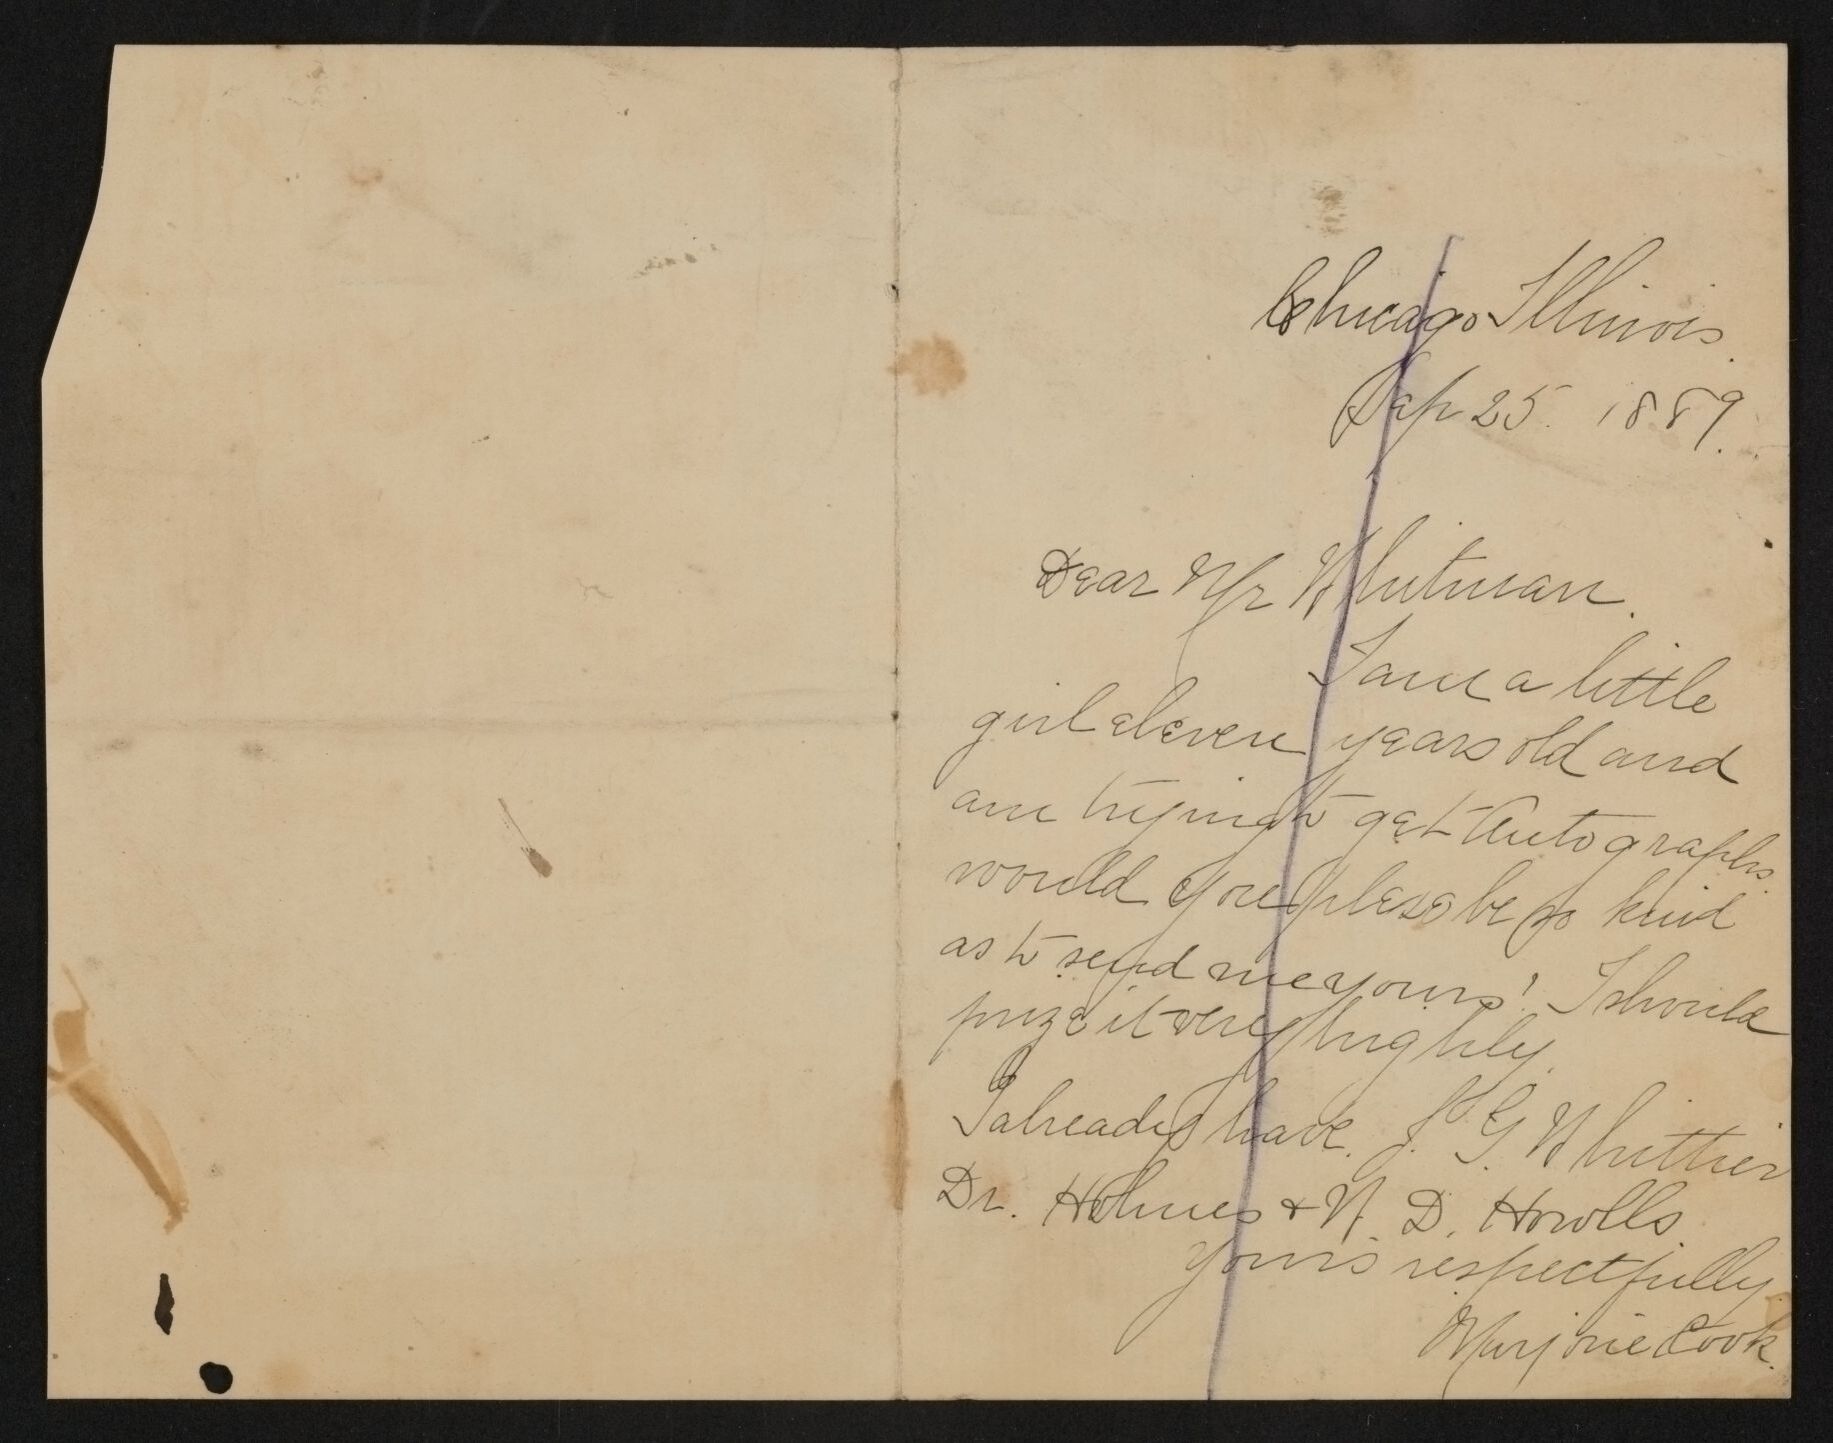 Chicago Illinois.
Sep 25. 1889.
Dear Mr Whitman.
I am a little
girl eleven years old and
am trying to get Autographs.
would you please be so kind
as to send me yours? I should
prize it very highly.
I already have. J. G. Whittier
Dr. Holmes & W. D. Howlls.
yours respectfully
Marjorie Cook.